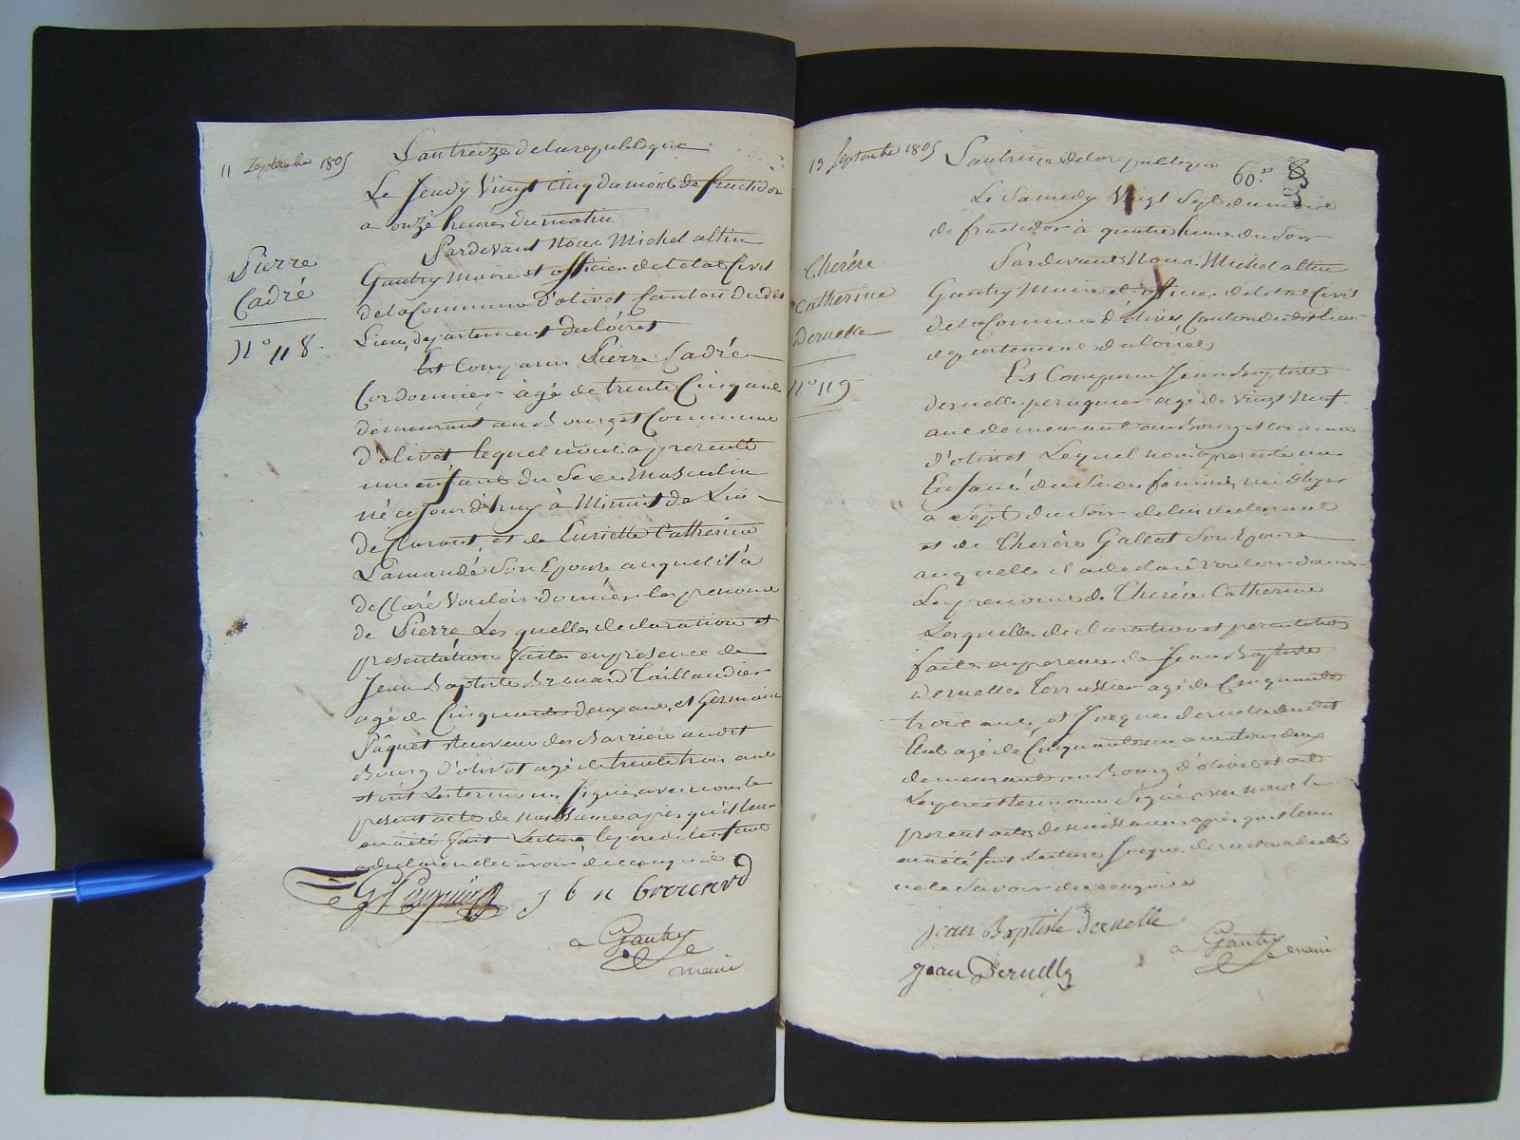 11 Septembre 1805
L'an treize de la republique
Le Jeudy Vingt Cinq du mois de fructidor
a onze heures du matin
Pardevant Nous Michel altin
Gautry Maire et officier de letat Civil
de la Commune d'olivet Canton dudit
Lieu, departement du loiret
Pierre
Cadré
N° 118.
Est Comparu Pierre Cadré
Cordonnier agé de trente Cinq ans
demeurant au Bourg et Commune
d'olivet lequel nous a presenté
un enfant du Sexe Masculin
né ce jourd'huy à Minuit de Lui
Declarant, et de Catherine
Lamandé Son Epouse auquel il a
Declaré Vouloir donner les prenoms
de Pierre Les quelles declaration et
presentation faites en presence de
Jean Baptiste Taillandier
agé de Cinquante deux ans, et Germain
Pâquet Receveur des Barriere au dit
Bourg d'olivet agé de trente trois ans
et ont Les temoins Signé avec nous le
present acte de Naissance apres qu'il leur
en a été fait Lecture, le pere de lenfant
a declaré ne le Savoir de ce enquis
G Paquet
j b n
a Gautry
maire
13 Septembre 1805
L'an treize de la republique
60.e
Le Samedy Vingt Sept du mois
de fructidor à quatre heures du Soir
Pardevant Nous Michel altin
Gautry Maire et officier de letat Civil
de la Commune d'olivet, Canton dudit Lieu
departement du loiret
Therése
Catherine
Dernelle
N° 119
Est Comparu Jean Baptiste
dernelle peruquier agé de Vingt Neuf
ans demeurant au Bourg et Commune
d'olivet Lequel nous a presenté un
Enfant du Sexe feminin né d'hyer
a Sept du Soir de lui declarant
et de Therése Gallet Son Epouse
auquelle il a declaré Vouloir donner
Les prenoms de Therése Catherine
Lesquelles declaration et presentation
faites en presence de Jean Baptiste
dernelle agé de Cinquante
trois ans, et Jacques
agé de Cinquante
demeurants au Bourg d'olivet et ont
Les pere et temoin Signé avec nous le
present acte de naissance apres qu'il leur
en a été fait Lecture Jacques
ne le Savoir de ce enquis
jean Baptiste dernelle
jean Dernelle
a Gautry
maire